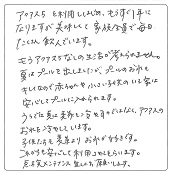 アクアスを利用しはじめ、もうすぐ1年に
なりますが美味しくて家族全員で毎日
たくさん飲んでいます。
もうアクアスなしの生活が考えられません。
夏はプールを出しましたが、プールのお水も
キレイなので赤ちゃんや小さい子供のいる家は
安心してプールに入れられます。
うちでは夏は麦茶を冷やすのではなく、アクアスの
お水を冷やしています。
子供たちも麦茶よりお水が好きです。
これからも安心して利用させてもらいます。
定期メンテナンス宜しくお願いします。